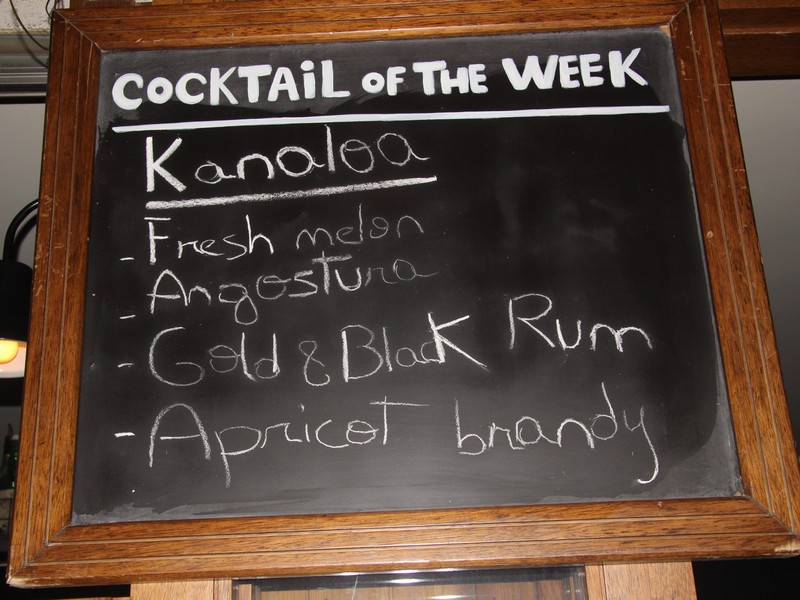 COCKTAiL OF THE WEEK
Kanaloa
- Fresh melon
- Angostura
- Gold & Black Rum
- Apricot brandy